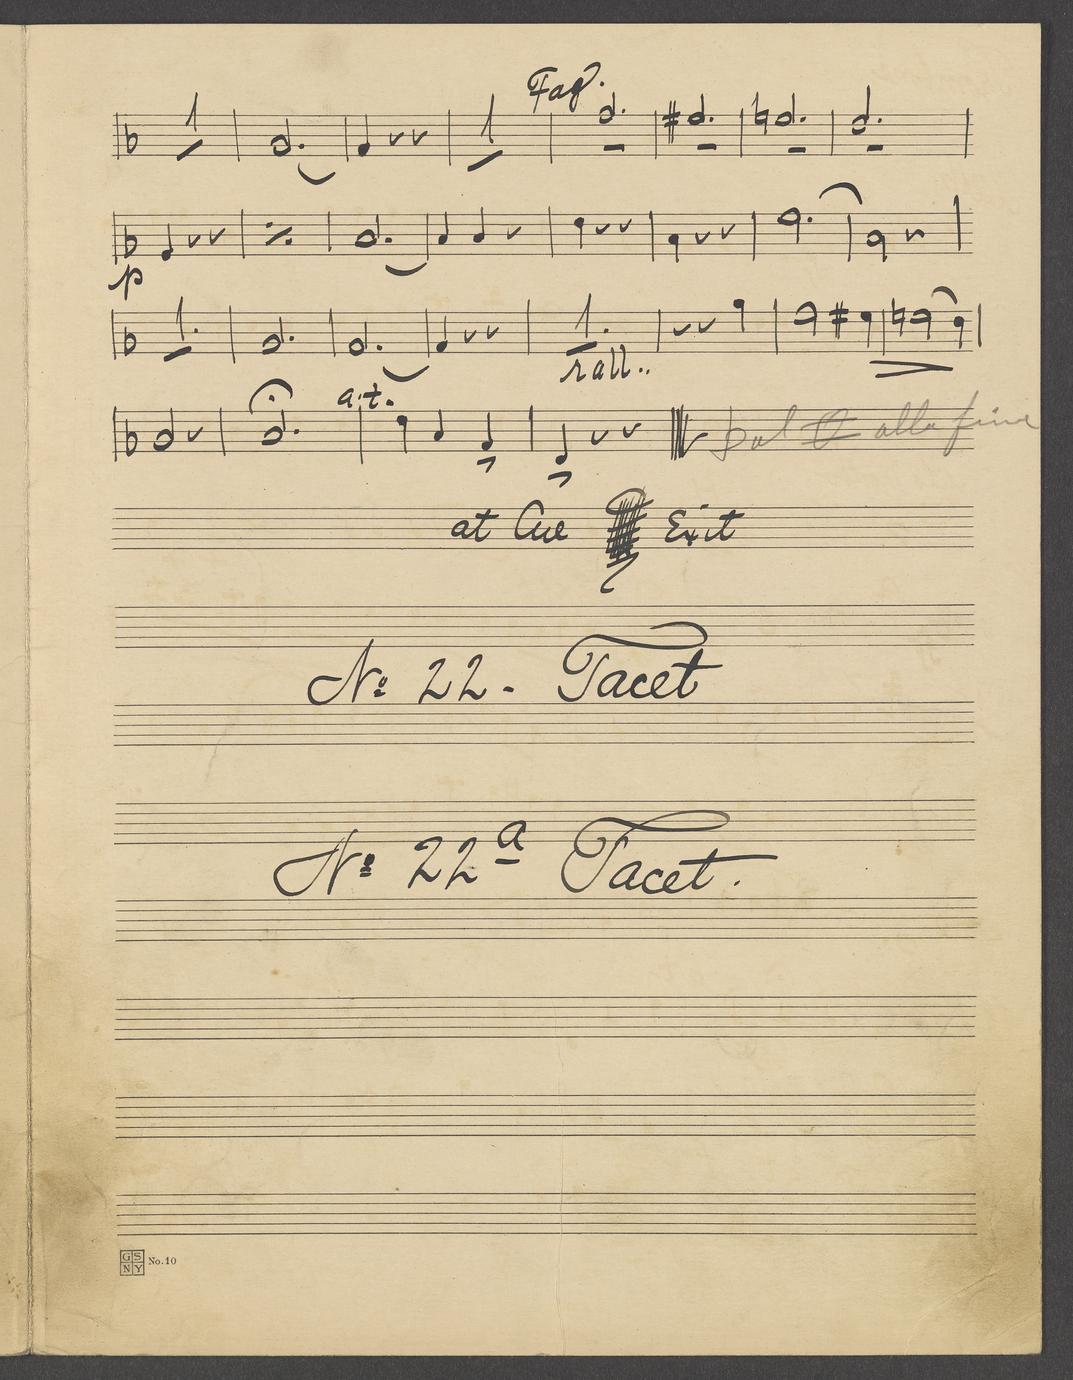 1 1 Fag.
p
1. 1. rall..
a.t. Dal alla fine
at Cue Exit
No 22. Tacet
No 22a Tacet.
GS
NY No. 10